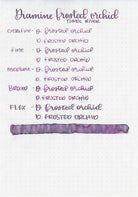 Diamine frosted orchid
EXTRAFINE - D. frosted orchid
D. FROSTED ORCHID
FINE - D. frosted orchid
D. FROSTED ORCHID
MEDIUM - D. frosted orchid
D. FROSTED ORCHID
BROAD - D. frosted orchid
D. FROSTED ORCHID
FLEX - D. frosted orchid
D. FROSTED ORCHID